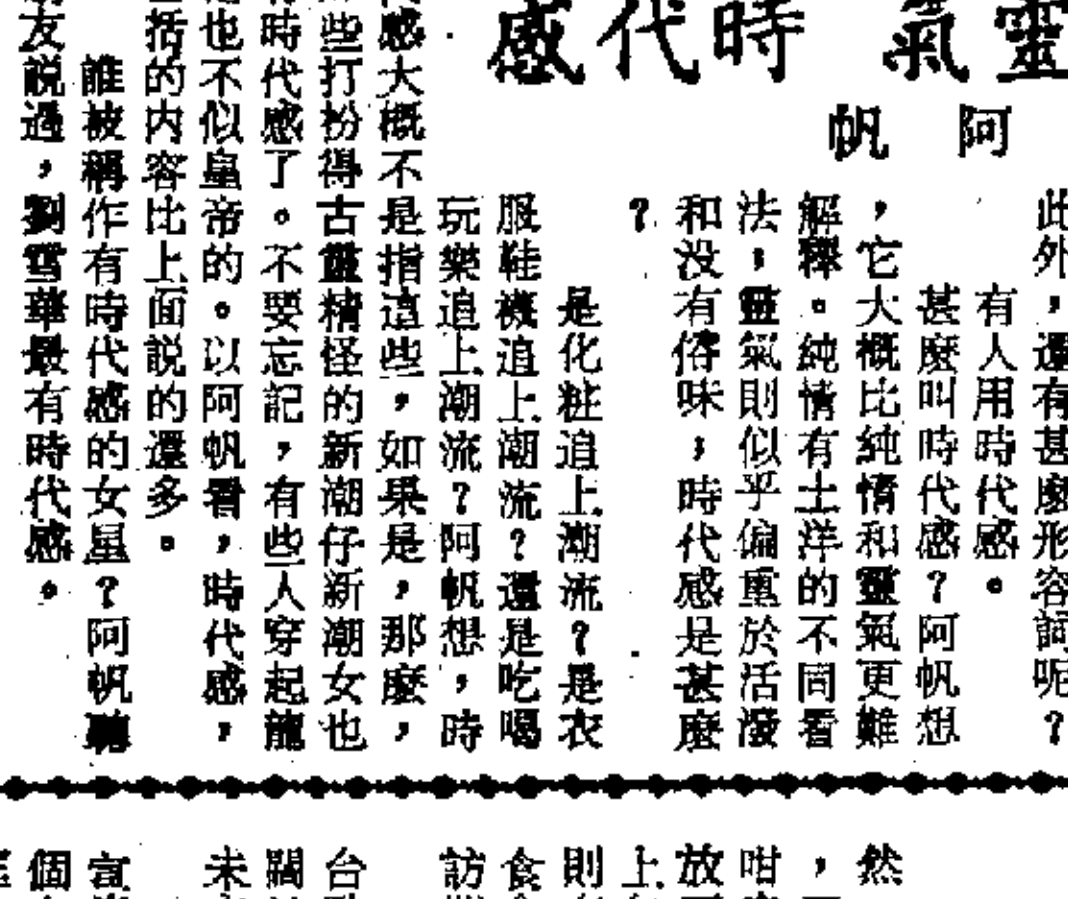 靈氣 時代感
阿帆
此外，還有甚麼形容詞呢？
有人用時代感。
甚麼叫時代感？阿帆想
，它大概比純情和靈氣更難
解釋。純情有土洋的不同看
法，靈氣則似乎偏重於活潑
和没有俗味，時代感是甚麼
？
是化粧追上潮流？是衣
服鞋襪追上潮流？還是吃喝
玩樂追上潮流？阿帆想，時
感大概不是指這些，如果是，那麼，
些打扮得古靈精怪的新潮仔新潮女也
時代感了。不要忘記，有些人穿起龍
也不似皇帝的。以阿帆看，時代感，
括的内容比上面説的還多。
誰被稱作有時代感的女星？阿帆聽
友説過，劉雪華最有時代感。
然
，
咁
放
上
則
食
訪
台
闊
未
個